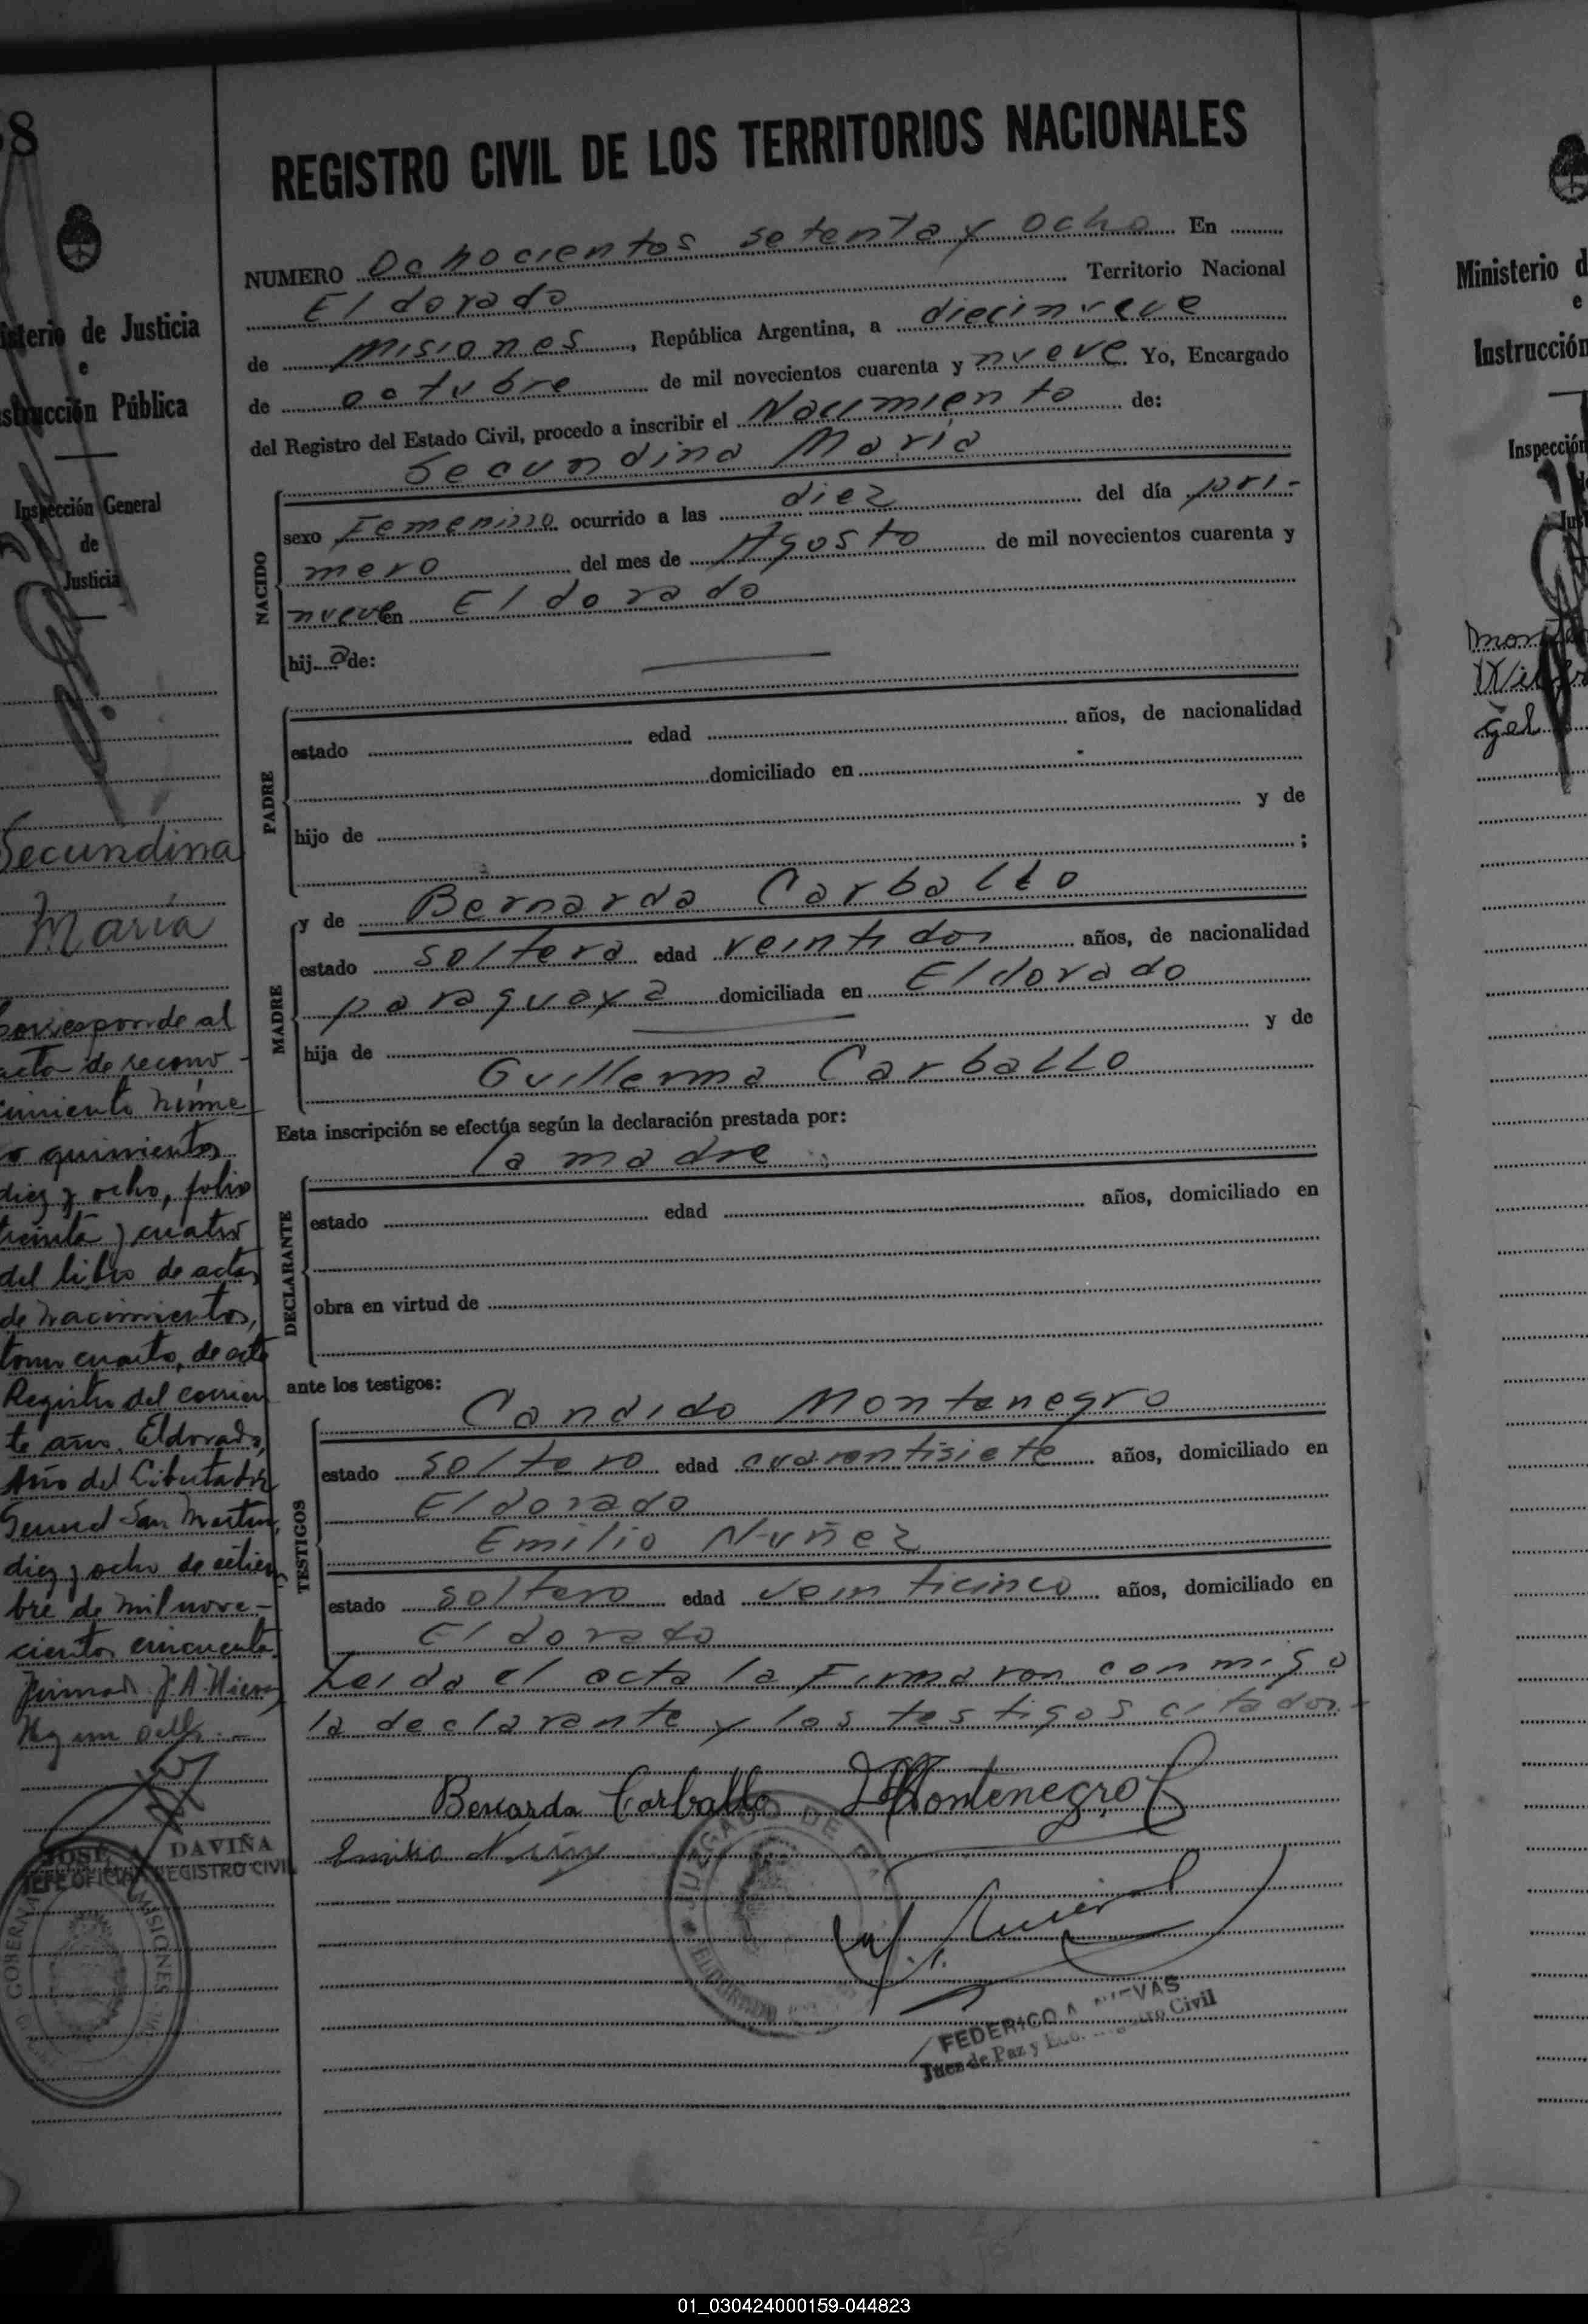 8
sterio de Justicia
e
strucción Pública
Inspección General
de
Justicia
Secundina
María
Corresponde al
acta de recono-
cimiento núme
ro quinientos
diez y ocho, folio
treinta y cuatro
del libro de actas
de nacimientos,
tomo cuarto, de este
Registro del corrien
te año. Eldorado,
Año del Libertador
General San Martin,
diez y ocho de
bre de mil nove-
cientos cincuenta.
JOSÉ A. DAVIÑA
JEFE OFICINA REGISTRO CIVIL
MISIONES
REGISTRO CIVIL DE LOS TERRITORIOS NACIONALES
NUMERO Ochocientos setenta y ocho En
Eldorado Territorio Nacional
de Misiones, República Argentina, a diecinueve
de octubre de mil novecientos cuarenta y nueve Yo, Encargado
del Registro del Estado Civil, procedo a inscribir el Nacimiento de:
Secundina Maria
NACIDO
sexo Femenino ocurrido a las diez del día pri-
mero del mes de Agosto de mil novecientos cuarenta y
nueve en Eldorado
hij a de:
PADRE
estado edad años, de nacionalidad
domiciliado en
hijo de y de
;
MADRE
y de Bernarda Carballo
estado soltera edad veintidos años, de nacionalidad
paraguaya domiciliada en Eldorado
hija de y de
Guillerma Carballo
Esta inscripción se efectúa según la declaración prestada por:
la madre
DECLARANTE
estado edad años, domiciliado en
obra en virtud de
ante los testigos:
Candido Montenegro
TESTIGOS
estado soltero edad cuarentisiete años, domiciliado en
Eldorado
Emilio Nuñez
estado soltero edad veinticinco años, domiciliado en
Eldorado
Leida el acta la Firmaron conmigo
la declarante y los testigos citados.-
Bernarda Carballo Montenegro
Emilio Nuñez
JUZGADO DE
ELDORADO
FEDERICO A. NIEVAS
Juez de Paz y Enc. Registro Civil
Ministerio d
e
Instrucción
Inspección
01_030424000159-044823